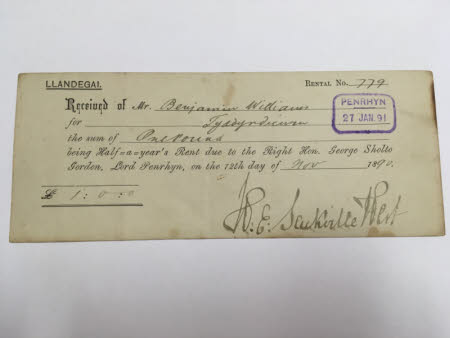 LLANDEGAI. RENTAL No. 779
Received of Mr. Benjamin Williams
for
the sum of One Pound
being Half=a=year's Rent due to the Right Hon. George Sholto
Gordon, Lord Penrhyn, on the 12th day of Nov 1890.
£ 1: 0
PENRHYN
27 JAN. 91
W. E. Sackville West